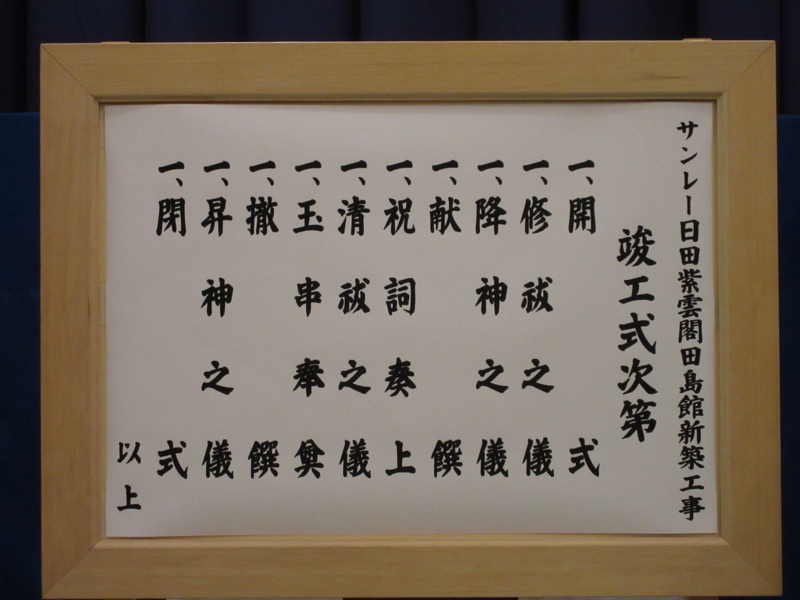 サンレー日田紫雲閣田島館新築工事
竣工式次第
一、開式
一、修祓之儀
一、降神之儀
一、献饌
一、祝詞奏上
一、清祓之儀
一、玉串奉奠
一、撤饌
一、昇神之儀
一、閉式
以上